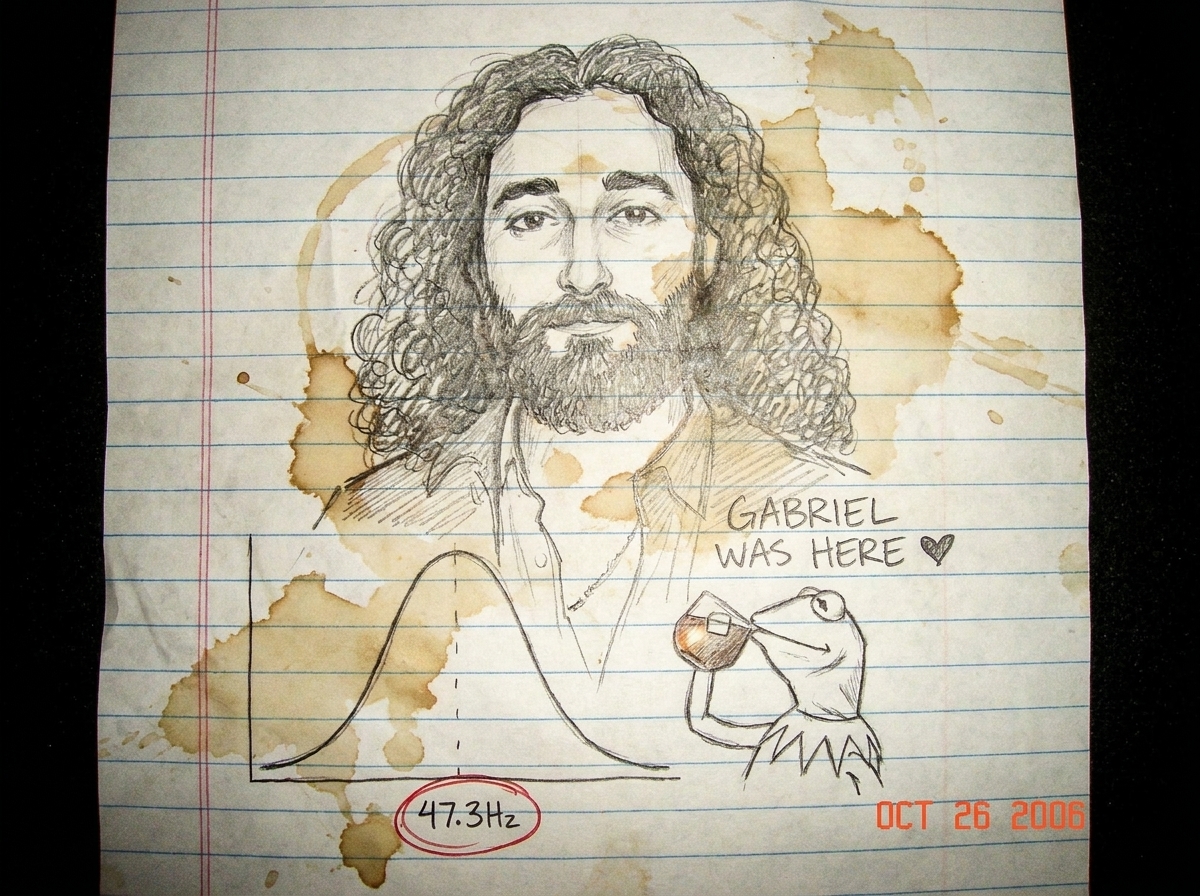 GABRIEL
WAS HERE ♥
47.3Hz
OCT 26 2006